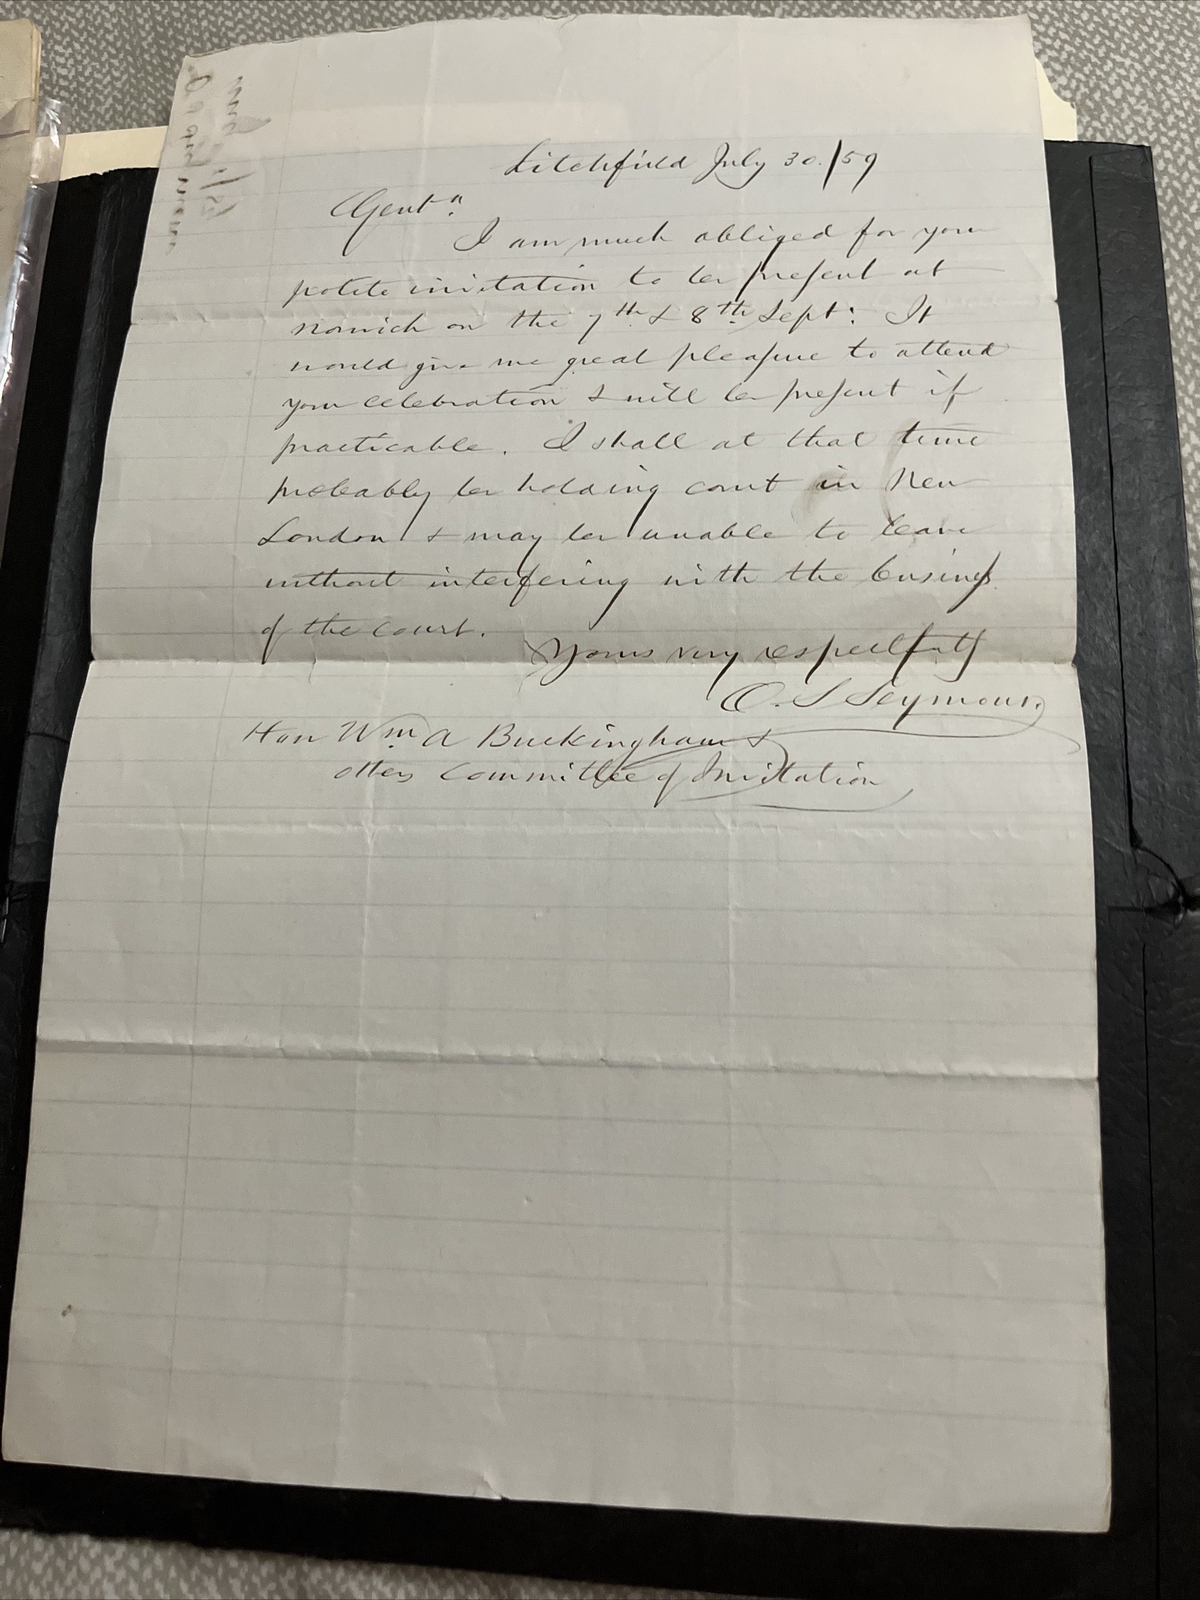 Litchfield July 30./59
Gentn.
I am much obliged for your
polite invitation to be present at
Norwich on the 7th & 8th Sept: It
would give me great pleasure to attend
your celebration & will be present if
practicable. I shall at that time
probably be holding court in New
London & may be unable to leave
without interfering with the business
of the court.
Yours very respectfully
O. S Seymour.
Hon Wm. A Buckingham &
others Committee of Invitation